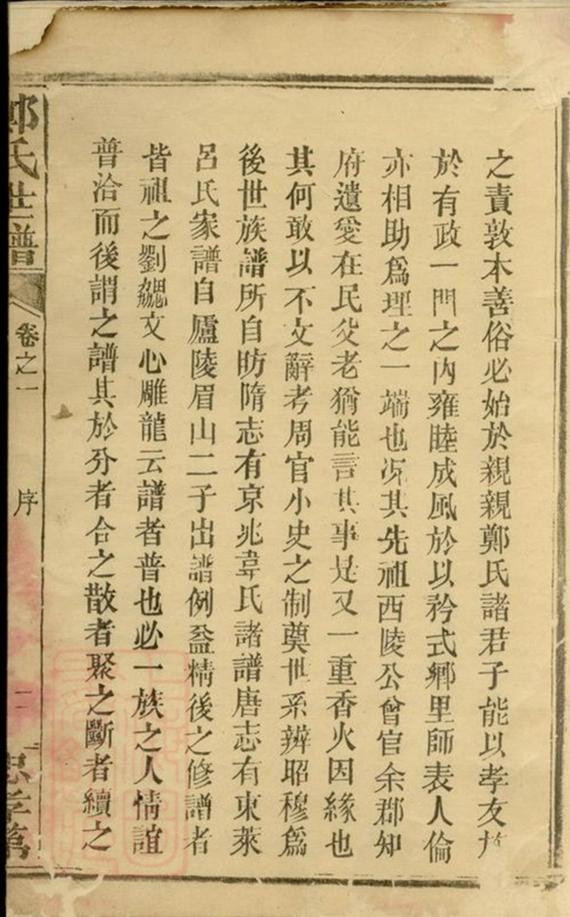 之責敦本善俗必始於親親鄭氏諸君子能以孝友施
於有政一門之內雍睦成風於以矜式鄉里師表人倫
亦相助爲理之一端也況其先祖西陵公曾官余郡知
府遺愛在民父老猶能言其事是又一重香火因緣也
其何敢以不文辭考周官小史之制奠世系辨昭穆爲
後世族譜所自昉隋志有京兆韋氏諸譜唐志有東萊
呂氏家譜自廬陵眉山二子出譜例益精後之修譜者
皆祖之劉勰文心雕龍云譜者普也必一族之人情誼
普洽而後謂之譜其於分者合之散者聚之斷者續之
鄭氏世譜
卷之一
序
二
忠孝第